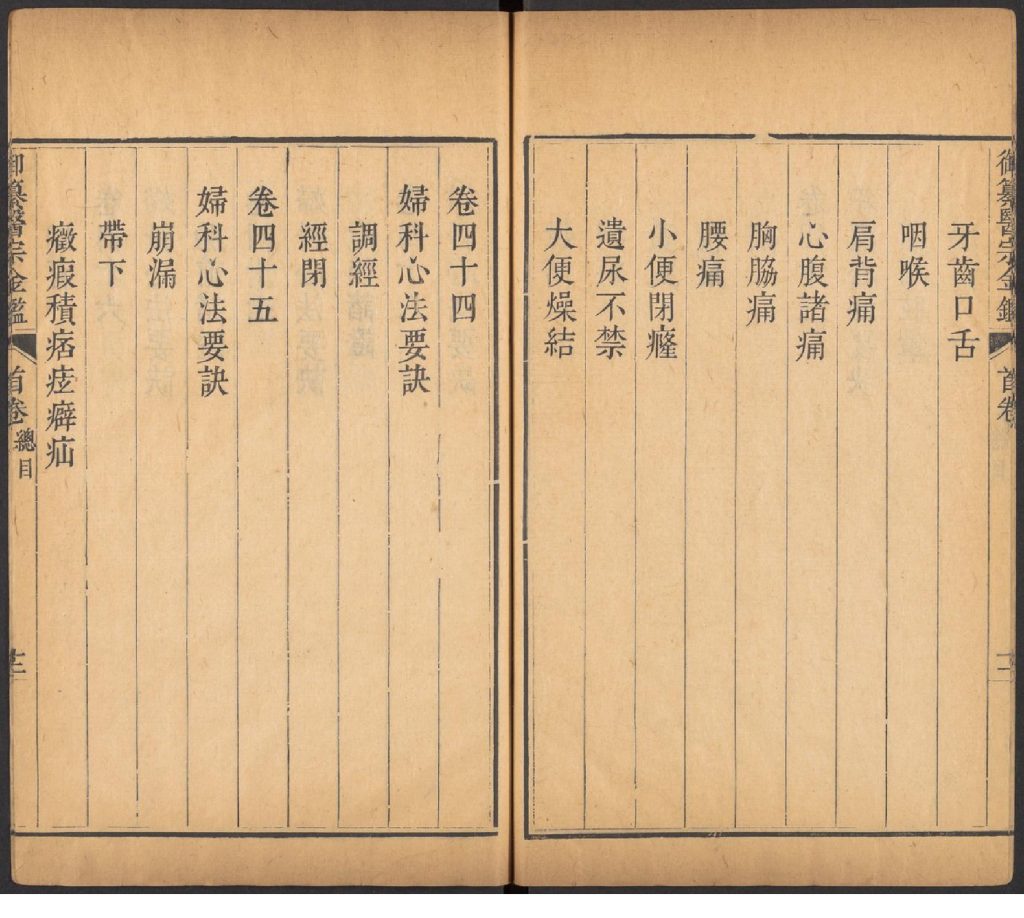 御纂醫宗金鑑
首卷
牙齒口舌
咽喉
肩背痛
心腹諸痛
胸脇痛
腰痛
小便閉癃
遺尿不禁
大便燥結
卷四十四
婦科心法要訣
調經
經閉
卷四十五
婦科心法要訣
崩漏
帶下
癥瘕積痞痃癖疝
御纂醫宗金鑑
首卷 總目